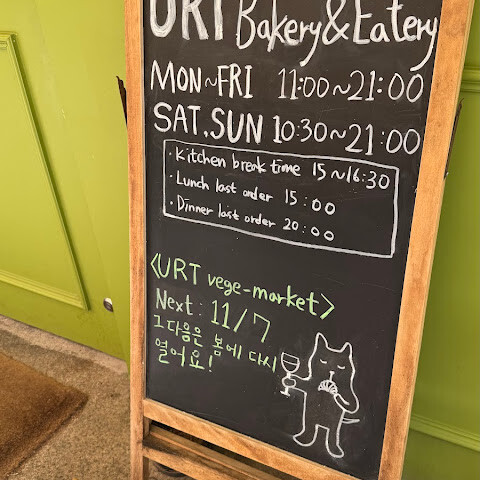 URT Bakery&Eatery
MON~FRI 11:00~21:00
SAT.SUN 10:30~21:00
· Kitchen break time 15~16:30
· Lunch last order 15:00
· Dinner last order 20:00
<URT vege-market>
Next: 11/7
그다음은 봄에 다시
열어요!